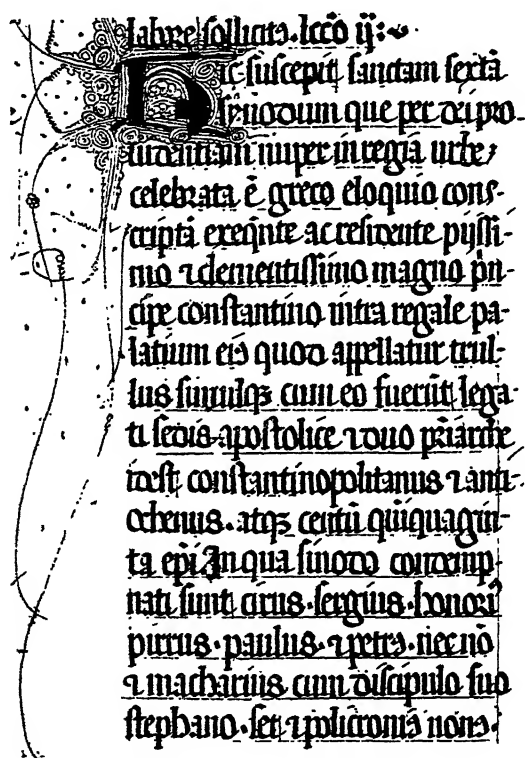 labore sollicitꝰ. lcc̄o ij:
Hic suscepit sanctam sextā
synodum que per dei pro-
uidentiam nuper in regia urbe
celebrata ē greco eloquio cons-
cripta exeq̄nte ac residente pijssi-
mo ⁊ clementissimo magno p̄n-
cipe constantino intra regale pa-
latium eiꝰ quod appellatur trul-
lus simulqꝫ cum eo fuerūt lega-
ti sedis apostolice ⁊ duo p̄riarche
idest constantinopolitanus ⁊ anti-
ochenus. atqꝫ centū quīquagin-
ta ep̄i In qua sinodo contemp-
nati sunt cirus. sergius. honori᷒
pirrus. paulus. ⁊ petrꝰ. nec nō
⁊ macharius cum discipulo suo
stephano. set ⁊ policroniꝰ nouꝰ.